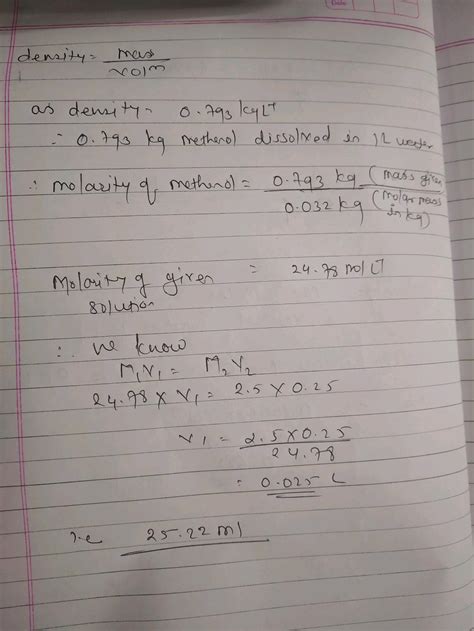 density = mass
volm
as density = 0.793 kg L⁻¹
∴ 0.793 kg methenol dissolved in 1L water
∴ molarity of methenol = 0.793 kg (mass given
0.032 kg (molar mass
in kg)
Molarity of given = 24.78 mol L⁻¹
solution
∴ we know
M₁V₁ = M₂V₂
24.78 × V₁ = 2.5 × 0.25
V₁ = 2.5 × 0.25
24.78
= 0.025 L
i.e 25.22 ml